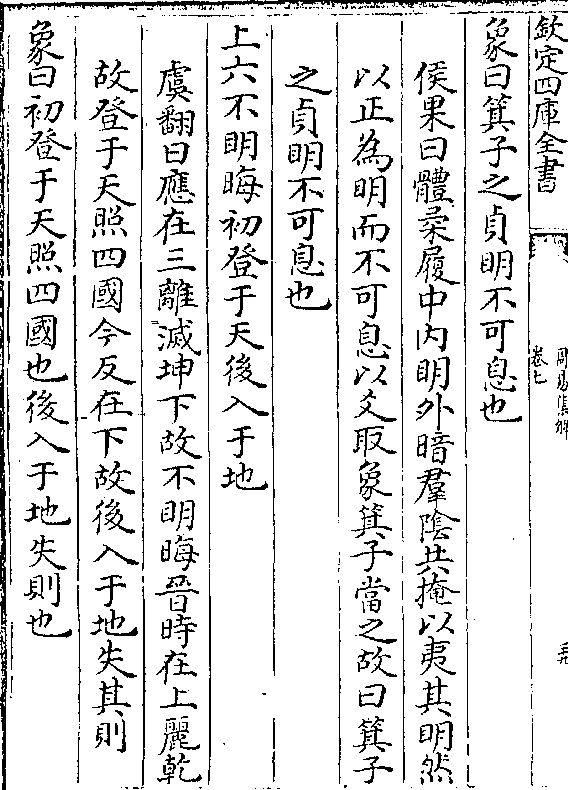 欽定四庫全書
周易集解
卷七
象曰箕子之貞明不可息也
侯果曰體柔履中内明外暗羣陰共掩以夷其明然
以正為明而不可息以爻取象箕子當之故曰箕子
之貞明不可息也
上六不明晦初登于天後入于地
虞翻曰應在三離滅坤下故不明晦晉時在上麗乾
故登于天照四國今反在下故後入于地失其則
象曰初登于天照四國也後入于地失則也